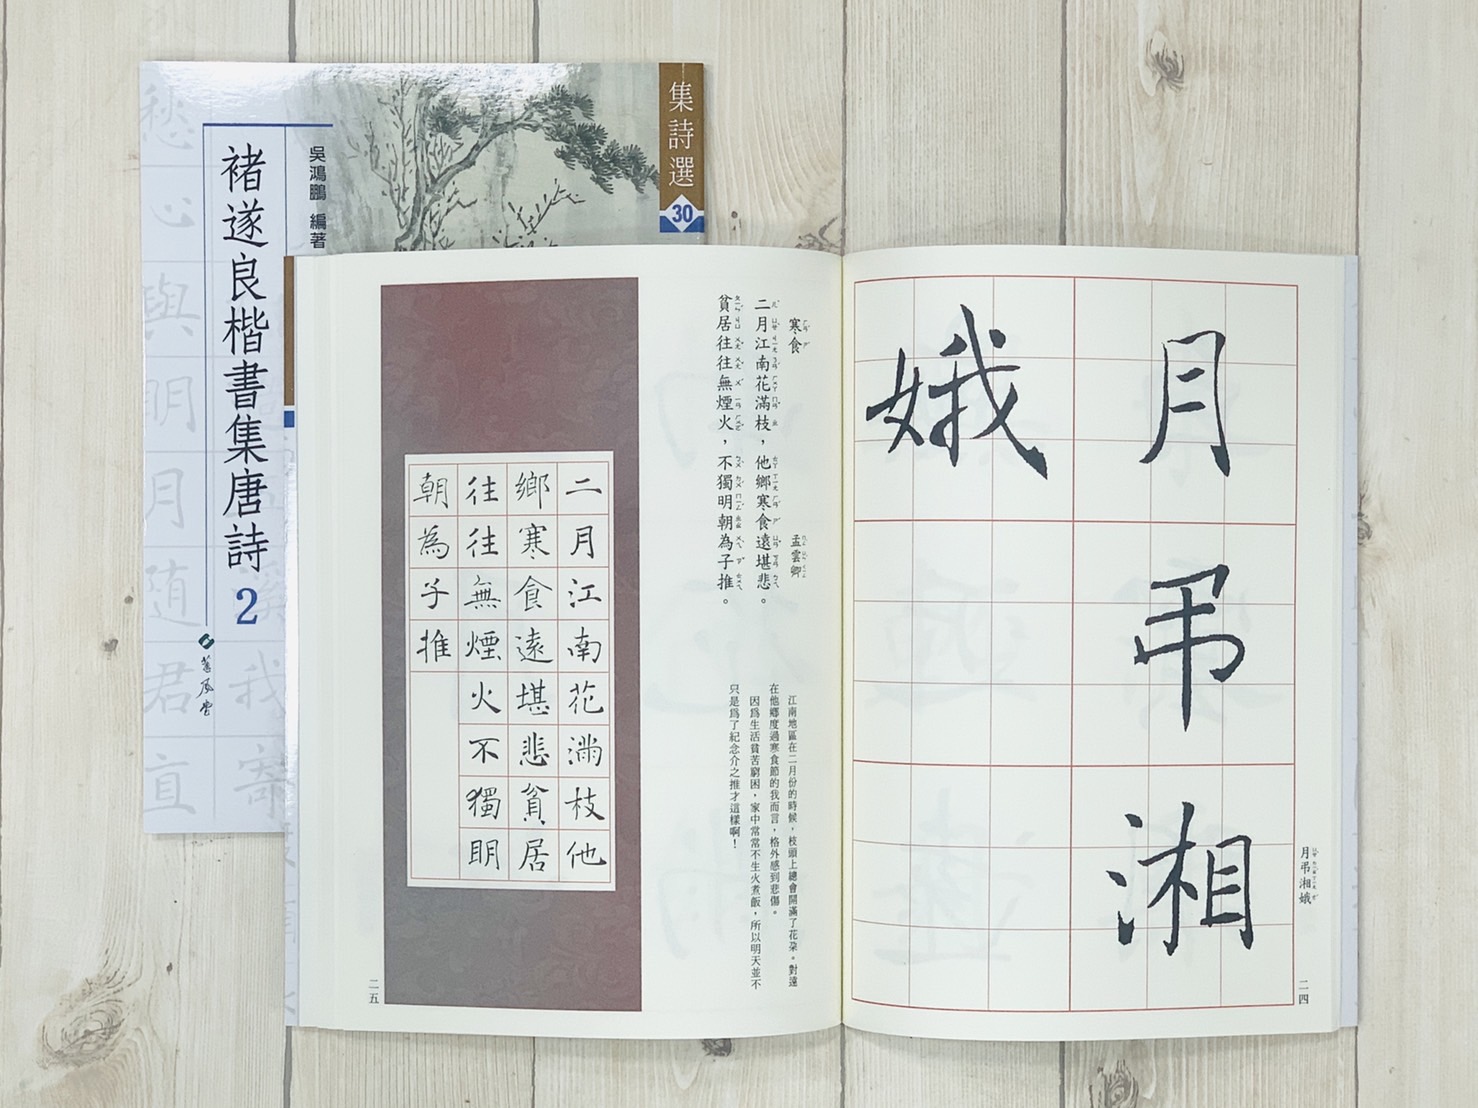 集詩選
30
吳鴻鵬 編著
褚遂良楷書集唐詩2
月弔湘
娥
月弔湘娥
二四
寒食 孟雲卿
二月江南花滿枝，他鄉寒食遠堪悲。
貧居往往無煙火，不獨明朝為子推。
江南地區在二月份的時候，枝頭上總會開滿了花朵。對遠
在他鄉度過寒食節的我而言，格外感到悲傷。
因為生活貧苦窮困，家中常常不生火煮飯，所以明天並不
只是為了紀念介之推才這樣啊！
二月江南花滿枝他
鄉寒食遠堪悲貧居
往往無煙火不獨明
朝為子推
二五
愁心與明月隨君直
我寄